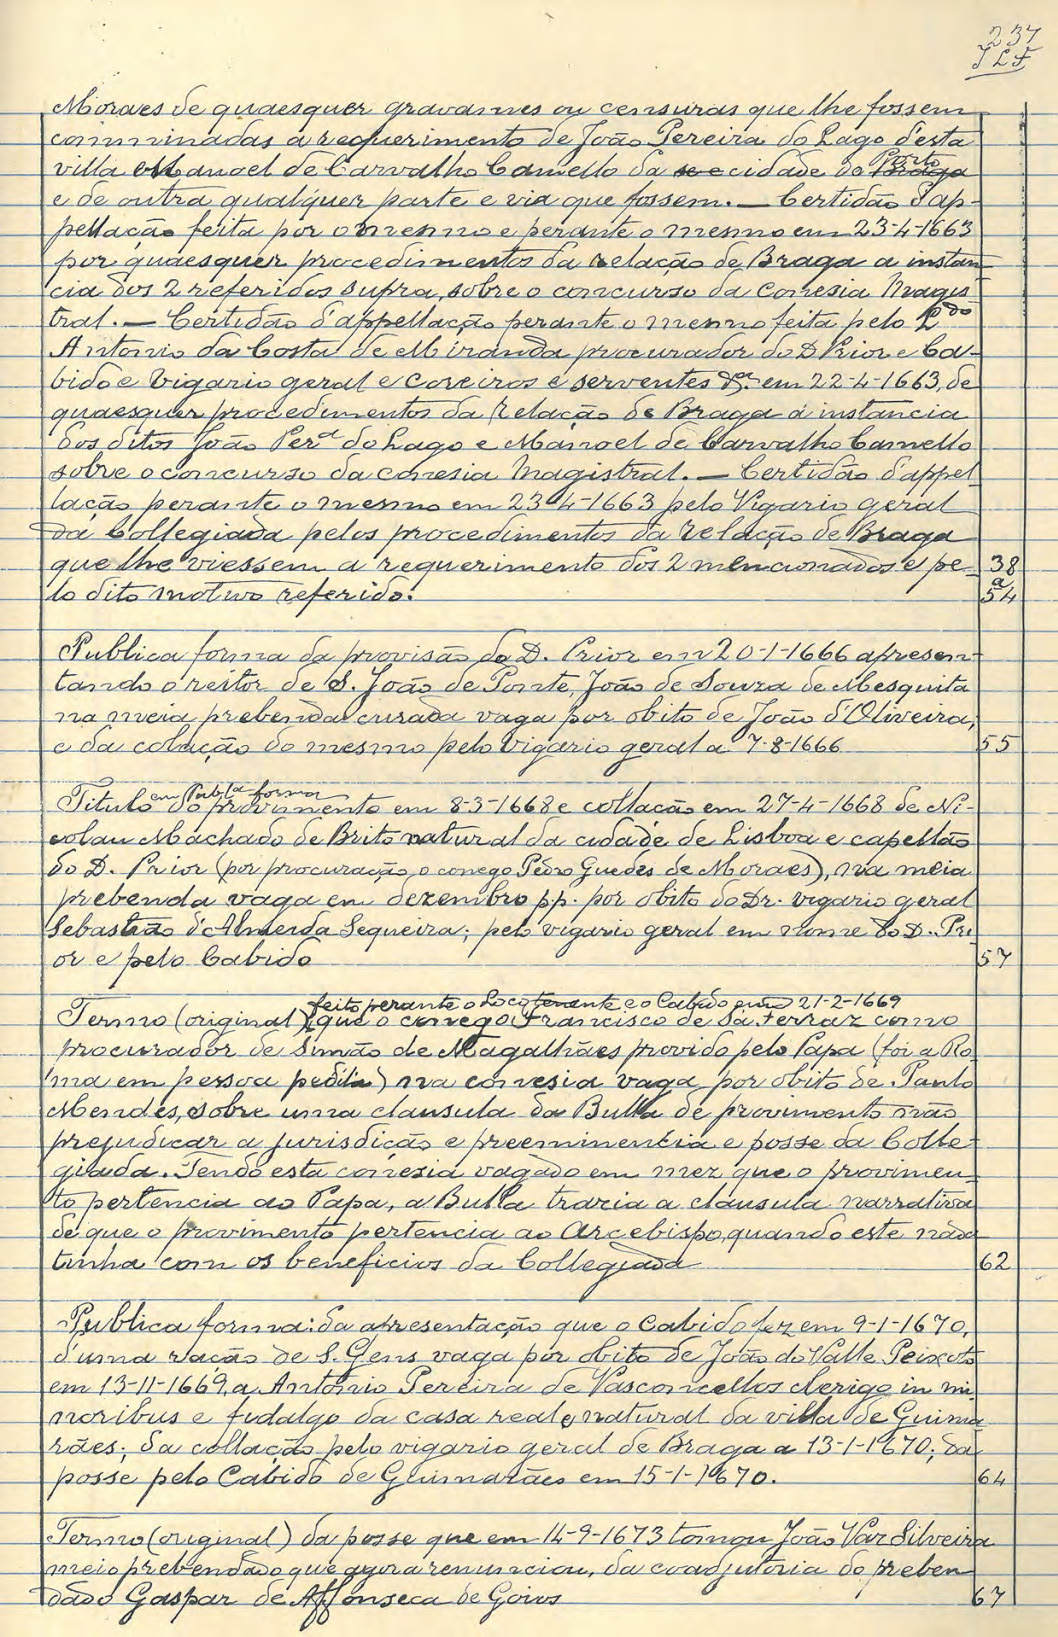 237
J L F
Moraes de quaesquer gravames ou censuras que lhe fossem
comminadas a requerimento de João Pereira do Lago d'esta
villa e Manoel de Carvalho Camello da se e cidade do Braga Porto
e de outra qualquer parte e via que fossem. — Certidão d'ap-
pellação feita por o mesmo e perante o mesmo em 23-4-1663
por quaesquer procedimentos da relação de Braga a instan-
cia dos 2 referidos supra, sobre o concurso da conesia Magis-
tral. — Certidão d'appellação perante o mesmo feita pelo Ldo
Antonio da Costa de Miranda procurador do D. Prior e Ca-
bido e Vigario geral e coreiros e serventes em 22-4-1663, de
quaesquer procedimentos da relação de Braga á instancia
dos ditos João Perª do Lago e Manoel de Carvalho Camello
sobre o concurso da conesia Magistral. — Certidão d'appel-
lação perante o mesmo em 23-4-1663 pelo Vigario geral
da Collegiada pelos procedimentos da relação de Braga
que lhe viessem a requerimento dos 2 mencionados e pe- 38
lo dito motivo referido. a 54
Publica forma da provisão do D. Prior em 20-1-1666 apresen-
tando o reitor de S. João de Ponte, João de Souza de Mesquita
na meia prebenda curada vaga por obito de João d'Oliveira,
e da colação do mesmo pelo vigario geral a 7-8-1666 55
em Publª forma
Titulo do provimento em 8-3-1668 e collação em 27-4-1668 de Ni-
colau Machado de Brito natural da cidade de Lisboa e capellão
do D. Prior (por procuração, o conego Pedro Guedes de Moraes), na meia
prebenda vaga em dezembro pp. por obito do Dr. vigario geral
Sebastião d'Almeida Sequeira; pelo vigario geral em nome do D. Pri-
or e pelo Cabido 57
feito perante o Locotenente e o Cabido em 21-2-1669
Termo (original) que o conego Francisco de Sá Ferraz como
procurador de Simão de Magalhães provido pelo Papa (foi a Ro-
ma em pessoa pedila) na conesia vaga por obito de Paulo
Mendes, sobre uma clausula da Bulla de provimento não
prejudicar a jurisdição e preeminencia e posse da Colle-
giada. Tendo esta conesia vagado em mez que o provimen-
to pertencia ao Papa, a Bulla trazia a clausula narrativa
de que o provimento pertencia ao Arcebispo, quando este nada
tinha com os beneficios da Collegiada 62
Publica forma: da apresentação que o Cabido fez em 9-1-1670,
d'uma ração de S. Gens vaga por obito de João do Valle Peixoto
em 13-11-1669, a Antonio Pereira de Vasconcellos clerigo in mi-
noribus e fidalgo da casa real e natural da villa de Guima-
rães; da collação pelo vigario geral de Braga a 13-1-1670; da
posse pelo Cabido de Guimarães em 15-1-1670. 64
Termo (original) da posse que em 14-9-1673 tomou João Vaz Silveira
meio prebendado que agora renunciou, da coadjutoria do preben-
dado Gaspar de Affonseca de Goivos 67